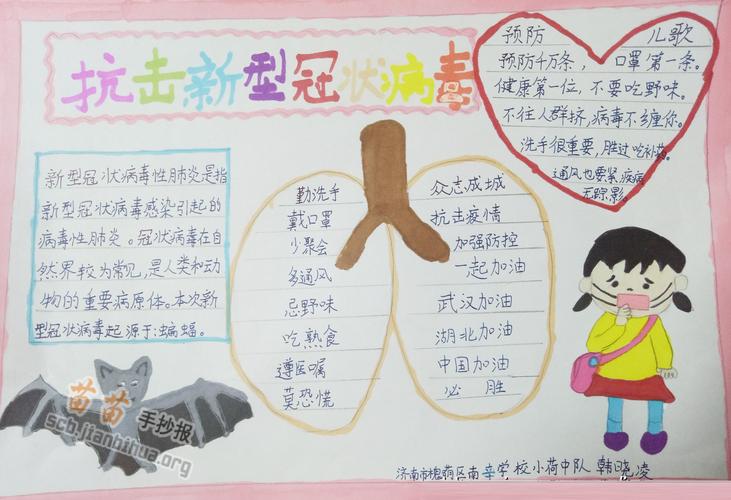 抗击新型冠状病毒
预防 儿歌
预防千万条，口罩第一条。
健康第一位，不要吃野味。
不往人群挤，病毒不缠你。
洗手很重要，胜过吃补药。
通风也要紧，疾病
无踪影。
新型冠状病毒性肺炎是指
新型冠状病毒感染引起的
病毒性肺炎。冠状病毒在自
然界较为常见，是人类和动
物的重要病原体。本次新
型冠状病毒起源于:蝙蝠。
勤洗手
戴口罩
少聚会
多通风
忌野味
吃熟食
遵医嘱
莫恐慌
众志成城
抗击疫情
加强防控
一起加油
武汉加油
湖北加油
中国加油
必胜
苗苗手抄报
scb.jianbihua.org
济南市槐荫区南辛学校小荷中队 韩晓凌